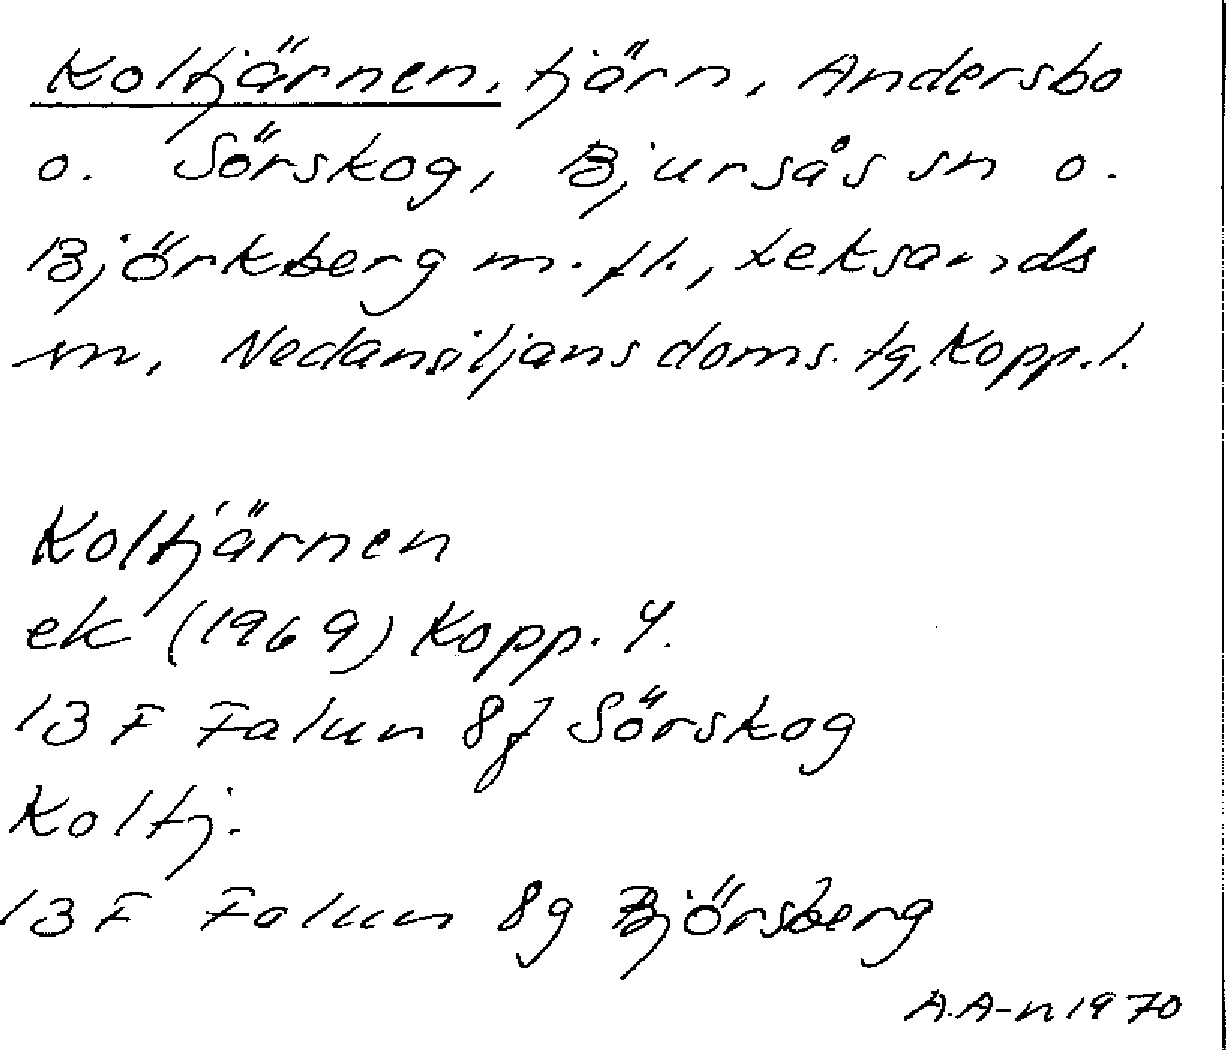 Koltjärnen, tjärn, Andersbo
o. Sörskog, Bjursås sn o.
Björkberg m. fl., Leksands
sn, Nedansiljans doms. tg, Kopp. l.
Koltjärnen
ek (1969) Kopp. Y.
13 F Falun 8f Sörskog
Koltj.
13 F Falun 8g Björsberg
A.A-n 1970